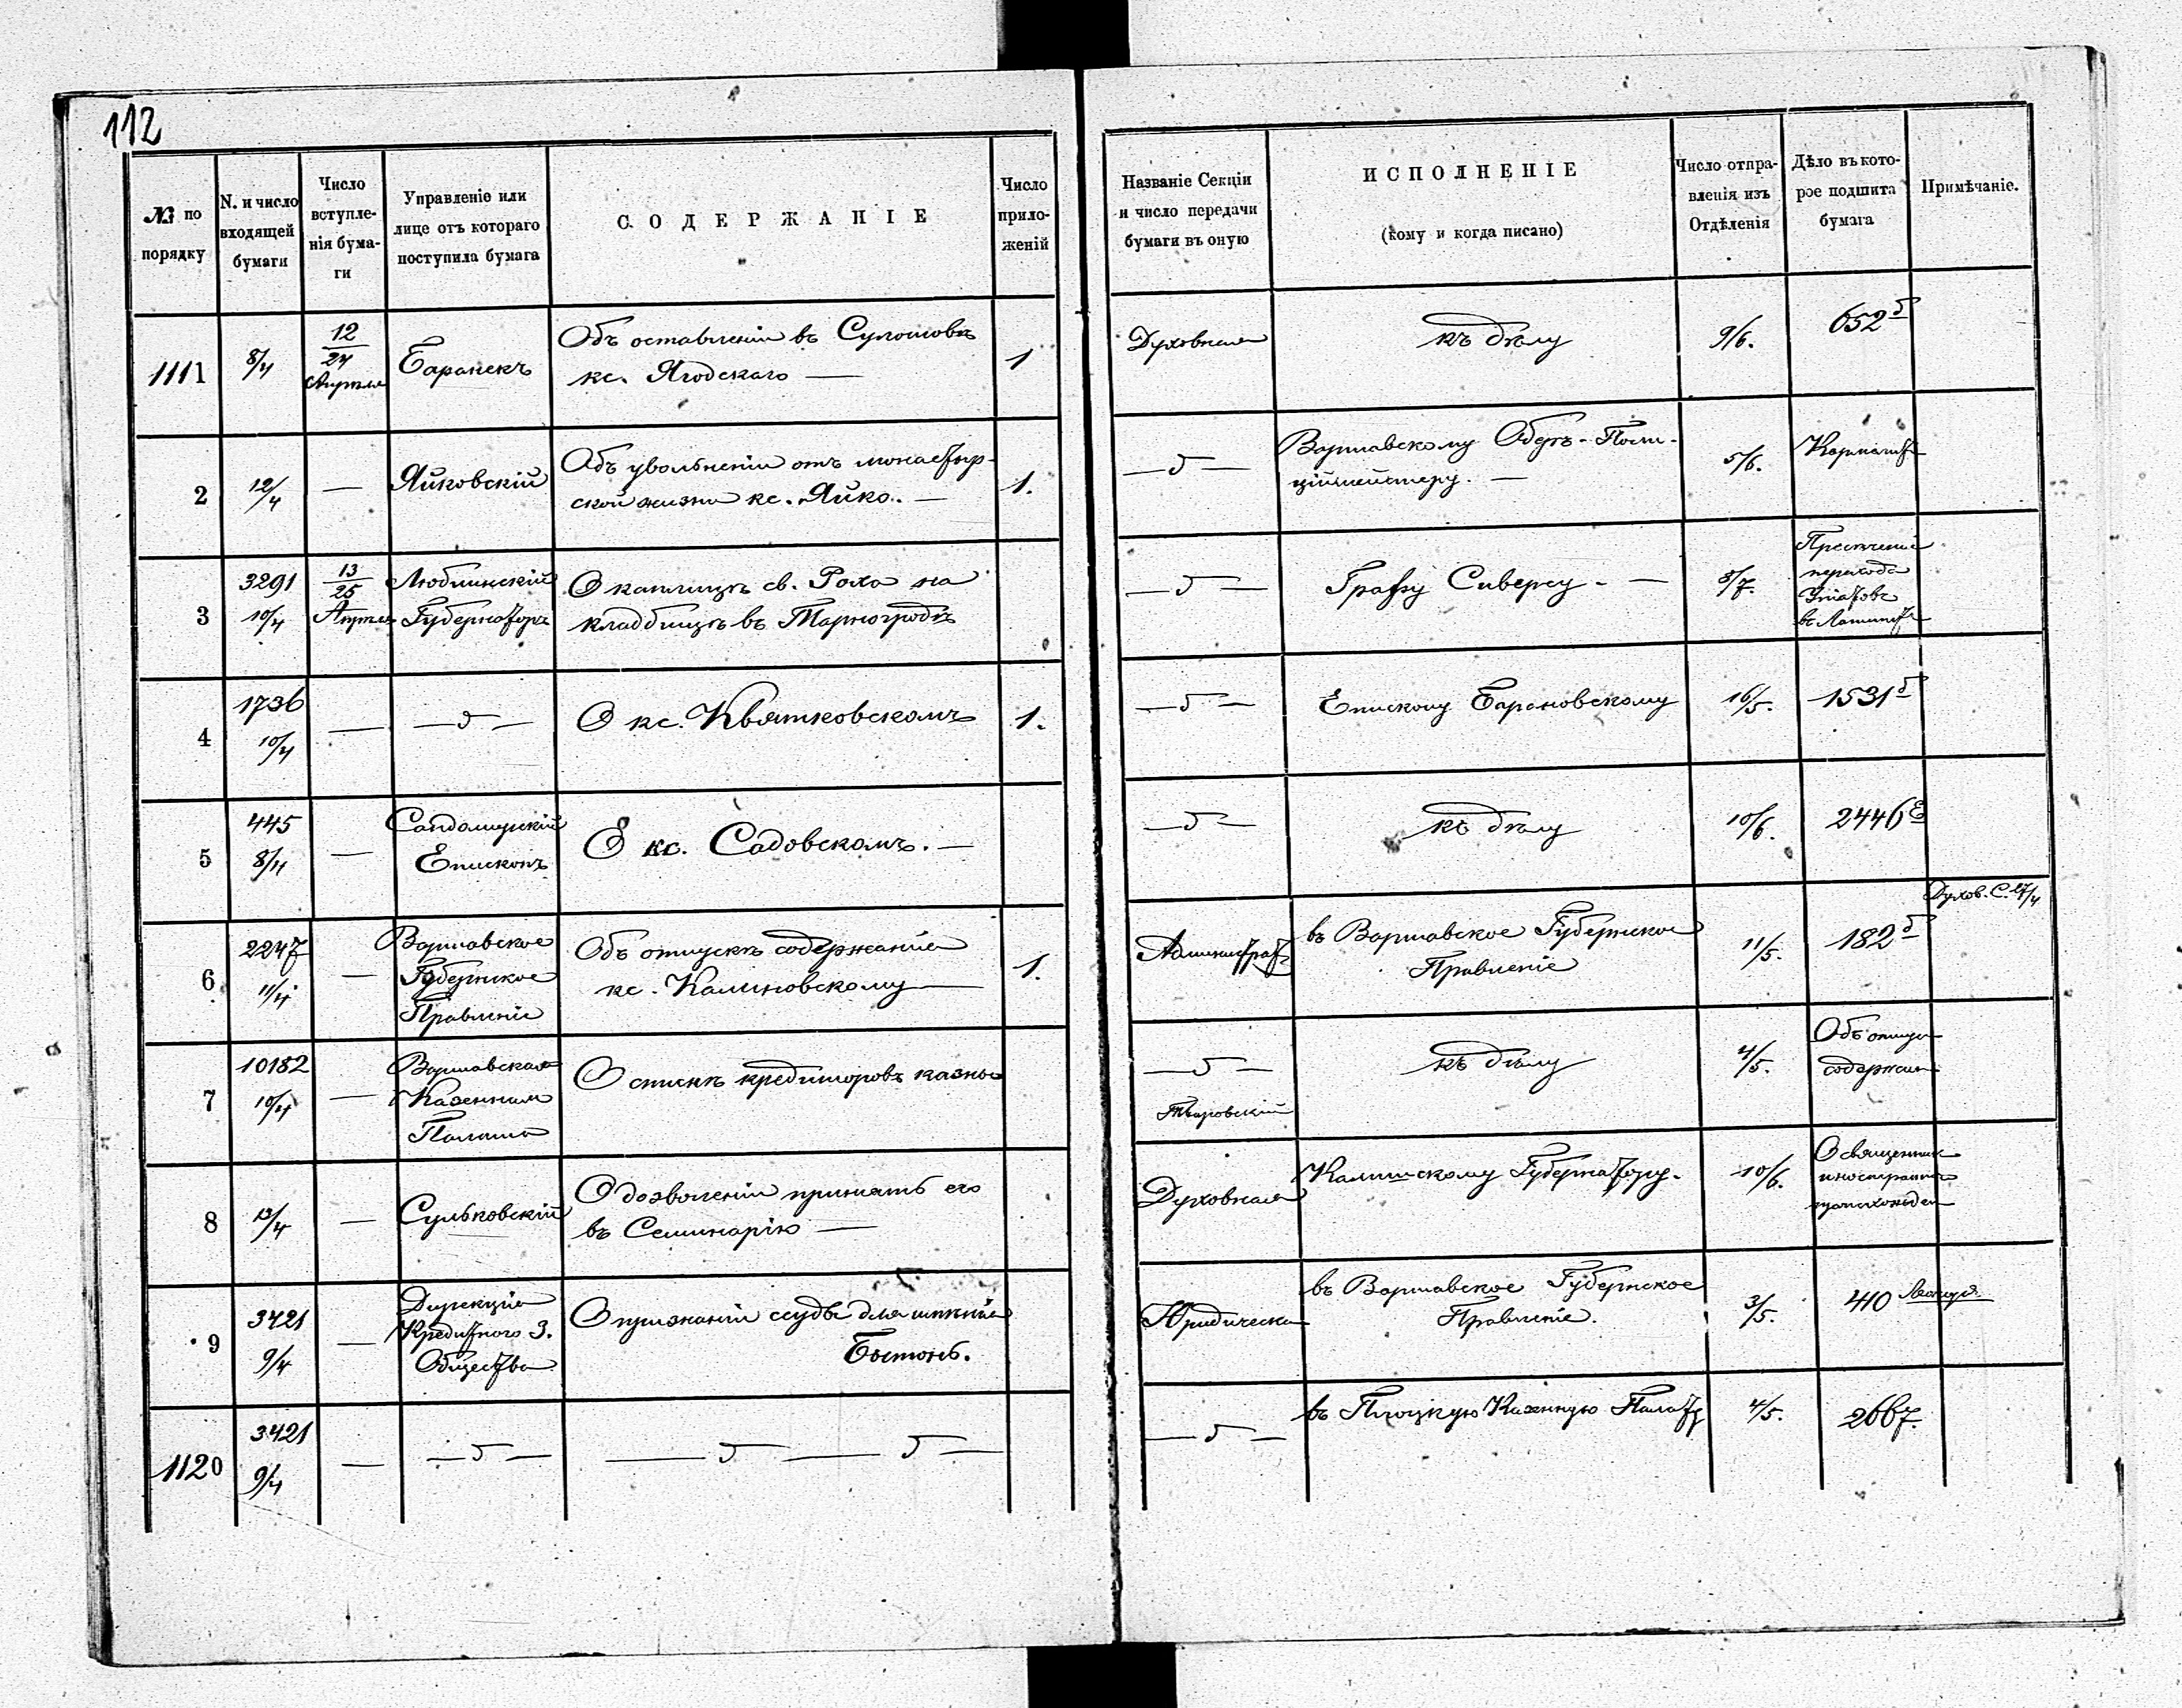 112
№ по порядку
N. и число входящей бумаги
Число вступле-
нія бума-
ги
Управленіе или
лице отъ котораго
поступила бумага
СОДЕРЖАНІЕ
Число
прило-
женій
Названіе Секціи
и число передачи
бумаги въ оную
ИСПОЛНЕНІЕ
(кому и когда писано)
Число отпра-
вленія изъ
Отдѣленія
Дѣло въ кото-
рое подшита
бумага
Примѣчаніе.
1111
8/4
12/24
Апрѣля
Баранекъ
Объ оставленіи въ Сулошовѣ
кс. Ягодскаго —
1
Духовная
къ дѣлу
9/6.
652 б
2
12/4
—
Яйковскій
Объ увольненіи отъ монастыр-
ской жизни кс. Яйко. —
1.
— " —
Варшавскому Оберъ-Поли-
ційместеру. —
5/6.
3
3291
10/4
13/25
Апрѣля
Люблинскій
Губернаторъ
О каплицѣ св. Роха на
кладбищѣ въ Тарногродѣ
— " —
Графу Сиверсу. —
8/7.
Пресѣченіе
перехода
Уніатовъ
въ Латинст
4
1736
10/4
—
— " —
О кс. Квятковскомъ
1.
— " —
Епископу Барановскому
16/5.
1531 б
5
445
8/4
—
Сандомирскій
Епископъ
О кс. Садовскомъ. —
— " —
къ дѣлу
10/6.
2446
6
2247
11/4
—
Варшавское
Губернское
Правленіе
Объ отпускѣ содержанія
кс. Калиновскому —
1.
Администрат
въ Варшавское Губернское
Правленіе
11/5.
182 б
Духов. С. 27/4
7
10182
10/4
—
Варшавская
Казенная
Палата
О спискѣ кредиторовъ казны
— " —
къ дѣлу
4/5.
Объ отпуск
содержан
8
13/4
—
Сульковскій
О дозволеніи принять его
въ Семинарію —
Духовная
Калишскому Губернатору.
10/6.
О священник
иностранн
происхожден
9
3421
9/4
—
Дирекція
Кредитного З.
Общества
О признаніи ссуды для имѣнія
Бытонь.
Юридическа
въ Варшавское Губернское
Правленіе.
3/5.
410
1120
3421
9/4
—
— " —
— " — " —
— " —
въ Плоцкую Казенную Палату
4/5.
2667.